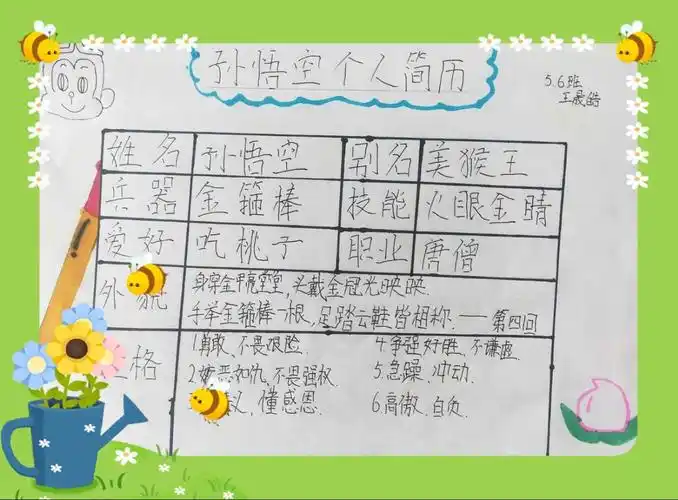 孙悟空个人简历
5.6班
王晟皓
姓名 孙悟空 别名 美猴王
兵器 金箍棒 技能 火眼金睛
爱好 吃桃子 职业 唐僧
外貌 身穿金甲亮堂堂,头戴金冠光映映.
手举金箍棒一根,足踏云鞋皆相称.——第四回
格 1.勇敢、不畏艰险. 4.争强好胜、不谦虚
2.嫉恶如仇、不畏强权. 5.急躁、冲动.
义、懂感恩. 6.高傲、自负.